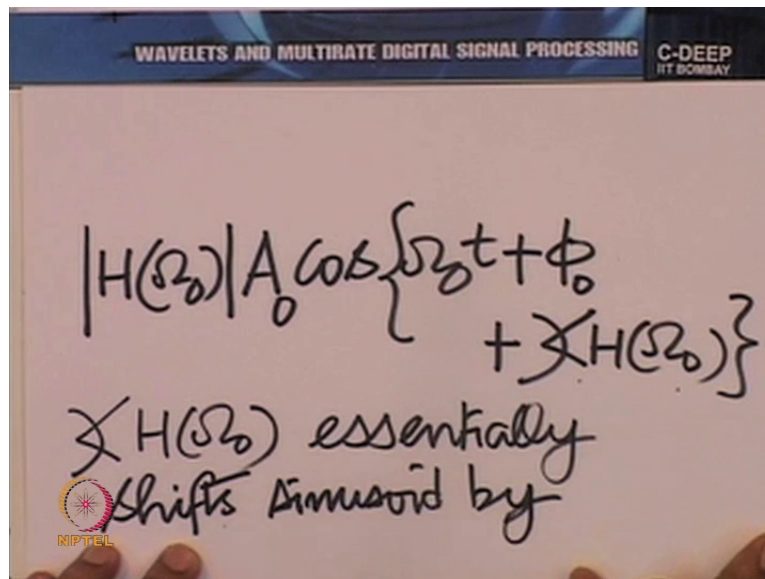 WAVELETS AND MULTIRATE DIGITAL SIGNAL PROCESSING
C-DEEP
IIT BOMBAY
|H(Ω₀)|A₀ cos{Ω₀t + φ₀
+ ∡H(Ω₀)}
∡H(Ω₀) essentially
shifts sinusoid by
NPTEL